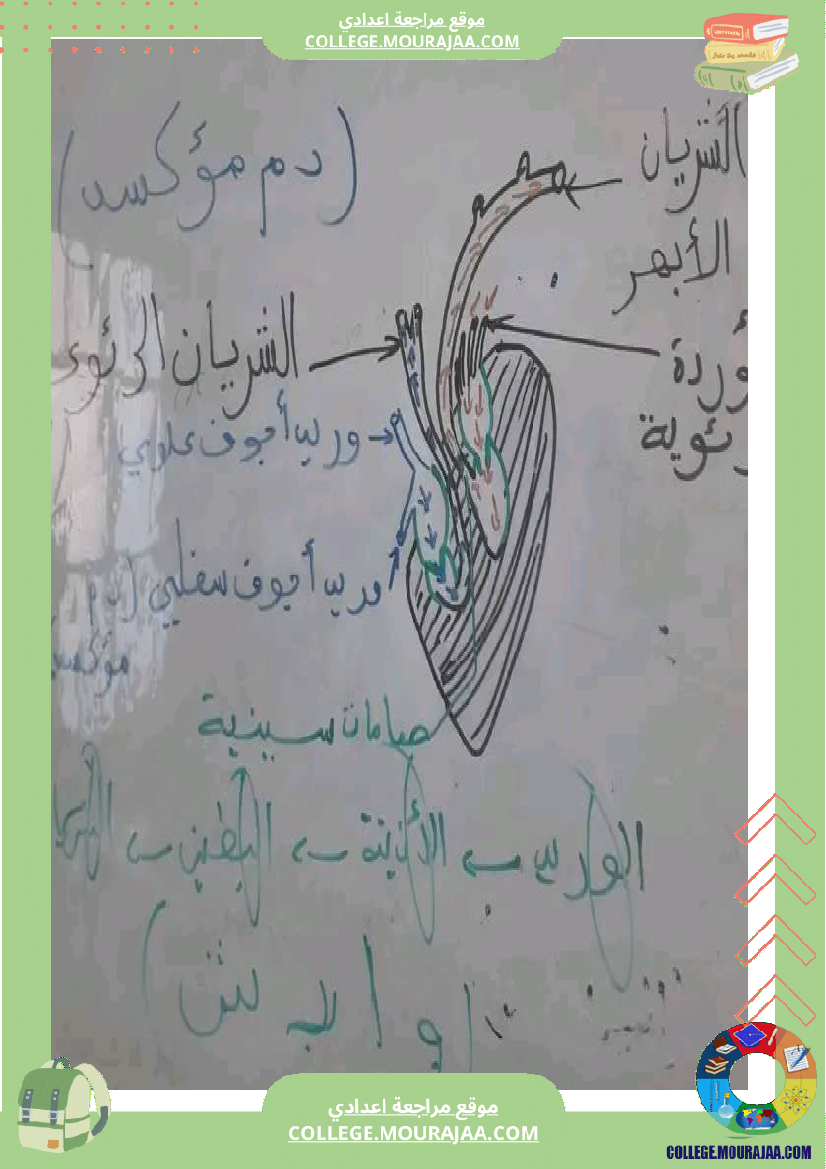 موقع مراجعة اعدادي
COLLEGE.MOURAJAA.COM
(دم مؤكسد)
الشريان
الأبهر
الشريان الرئوي
أوردة
رئوية
وريد أجوف علوي
وريد أجوف سفلي (دم
مؤكسد
صمامات سينية
الوريد ← الأذينة ← البطين ←
موقع مراجعة اعدادي
COLLEGE.MOURAJAA.COM
COLLEGE.MOURAJAA.COM